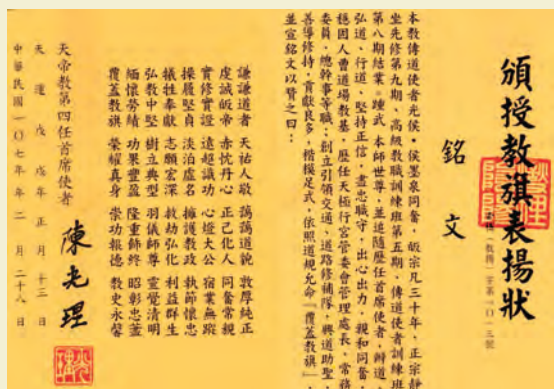 頒授教旗表揚狀
銘文
本教傳道使者光俟·侯墨泉同奮,皈宗凡三十年,正宗靜
坐先修第九期、高級教職訓練班第五期、傳道使者訓練班
第八期結業。踵武 本師世尊,並追隨歷任首席使者,辦道、
弘道、行道、堅持正信,盡忠職守,出心出力,親和同奮,
穩固人曹道場教基,歷任天極行宮管委會管理處長、常務
委員、總幹事等職;創立引領交通、道路修補隊,興道助聖,
善導修持,貢獻良多,楷模足式,依照道規允命「覆蓋教旗」,
並宣銘文以贊之曰:
謙謙道者 天祐人敬 藹藹道貌 敦厚純正
虔誠皈帝 赤忱丹心 正己化人 同奮常親
實修實證 遠超識功 心燈大公 宿業無蹤
操履堅貞 淡泊虛名 擁護教政 執節懷忠
犧牲奉獻 志願宏深 救劫弘化 利益群生
弘教中堅 樹立典型 羽儀師尊 靈覺清明
緬懷勞績 功果豐盈 隆重飾終 昭彰忠藎
覆蓋教旗 榮耀真身 崇功報德 教史永馨
天帝教第四任首席使者 陳光理
天運戊戌年正月十三日
中華民國一〇七年二月二十八日